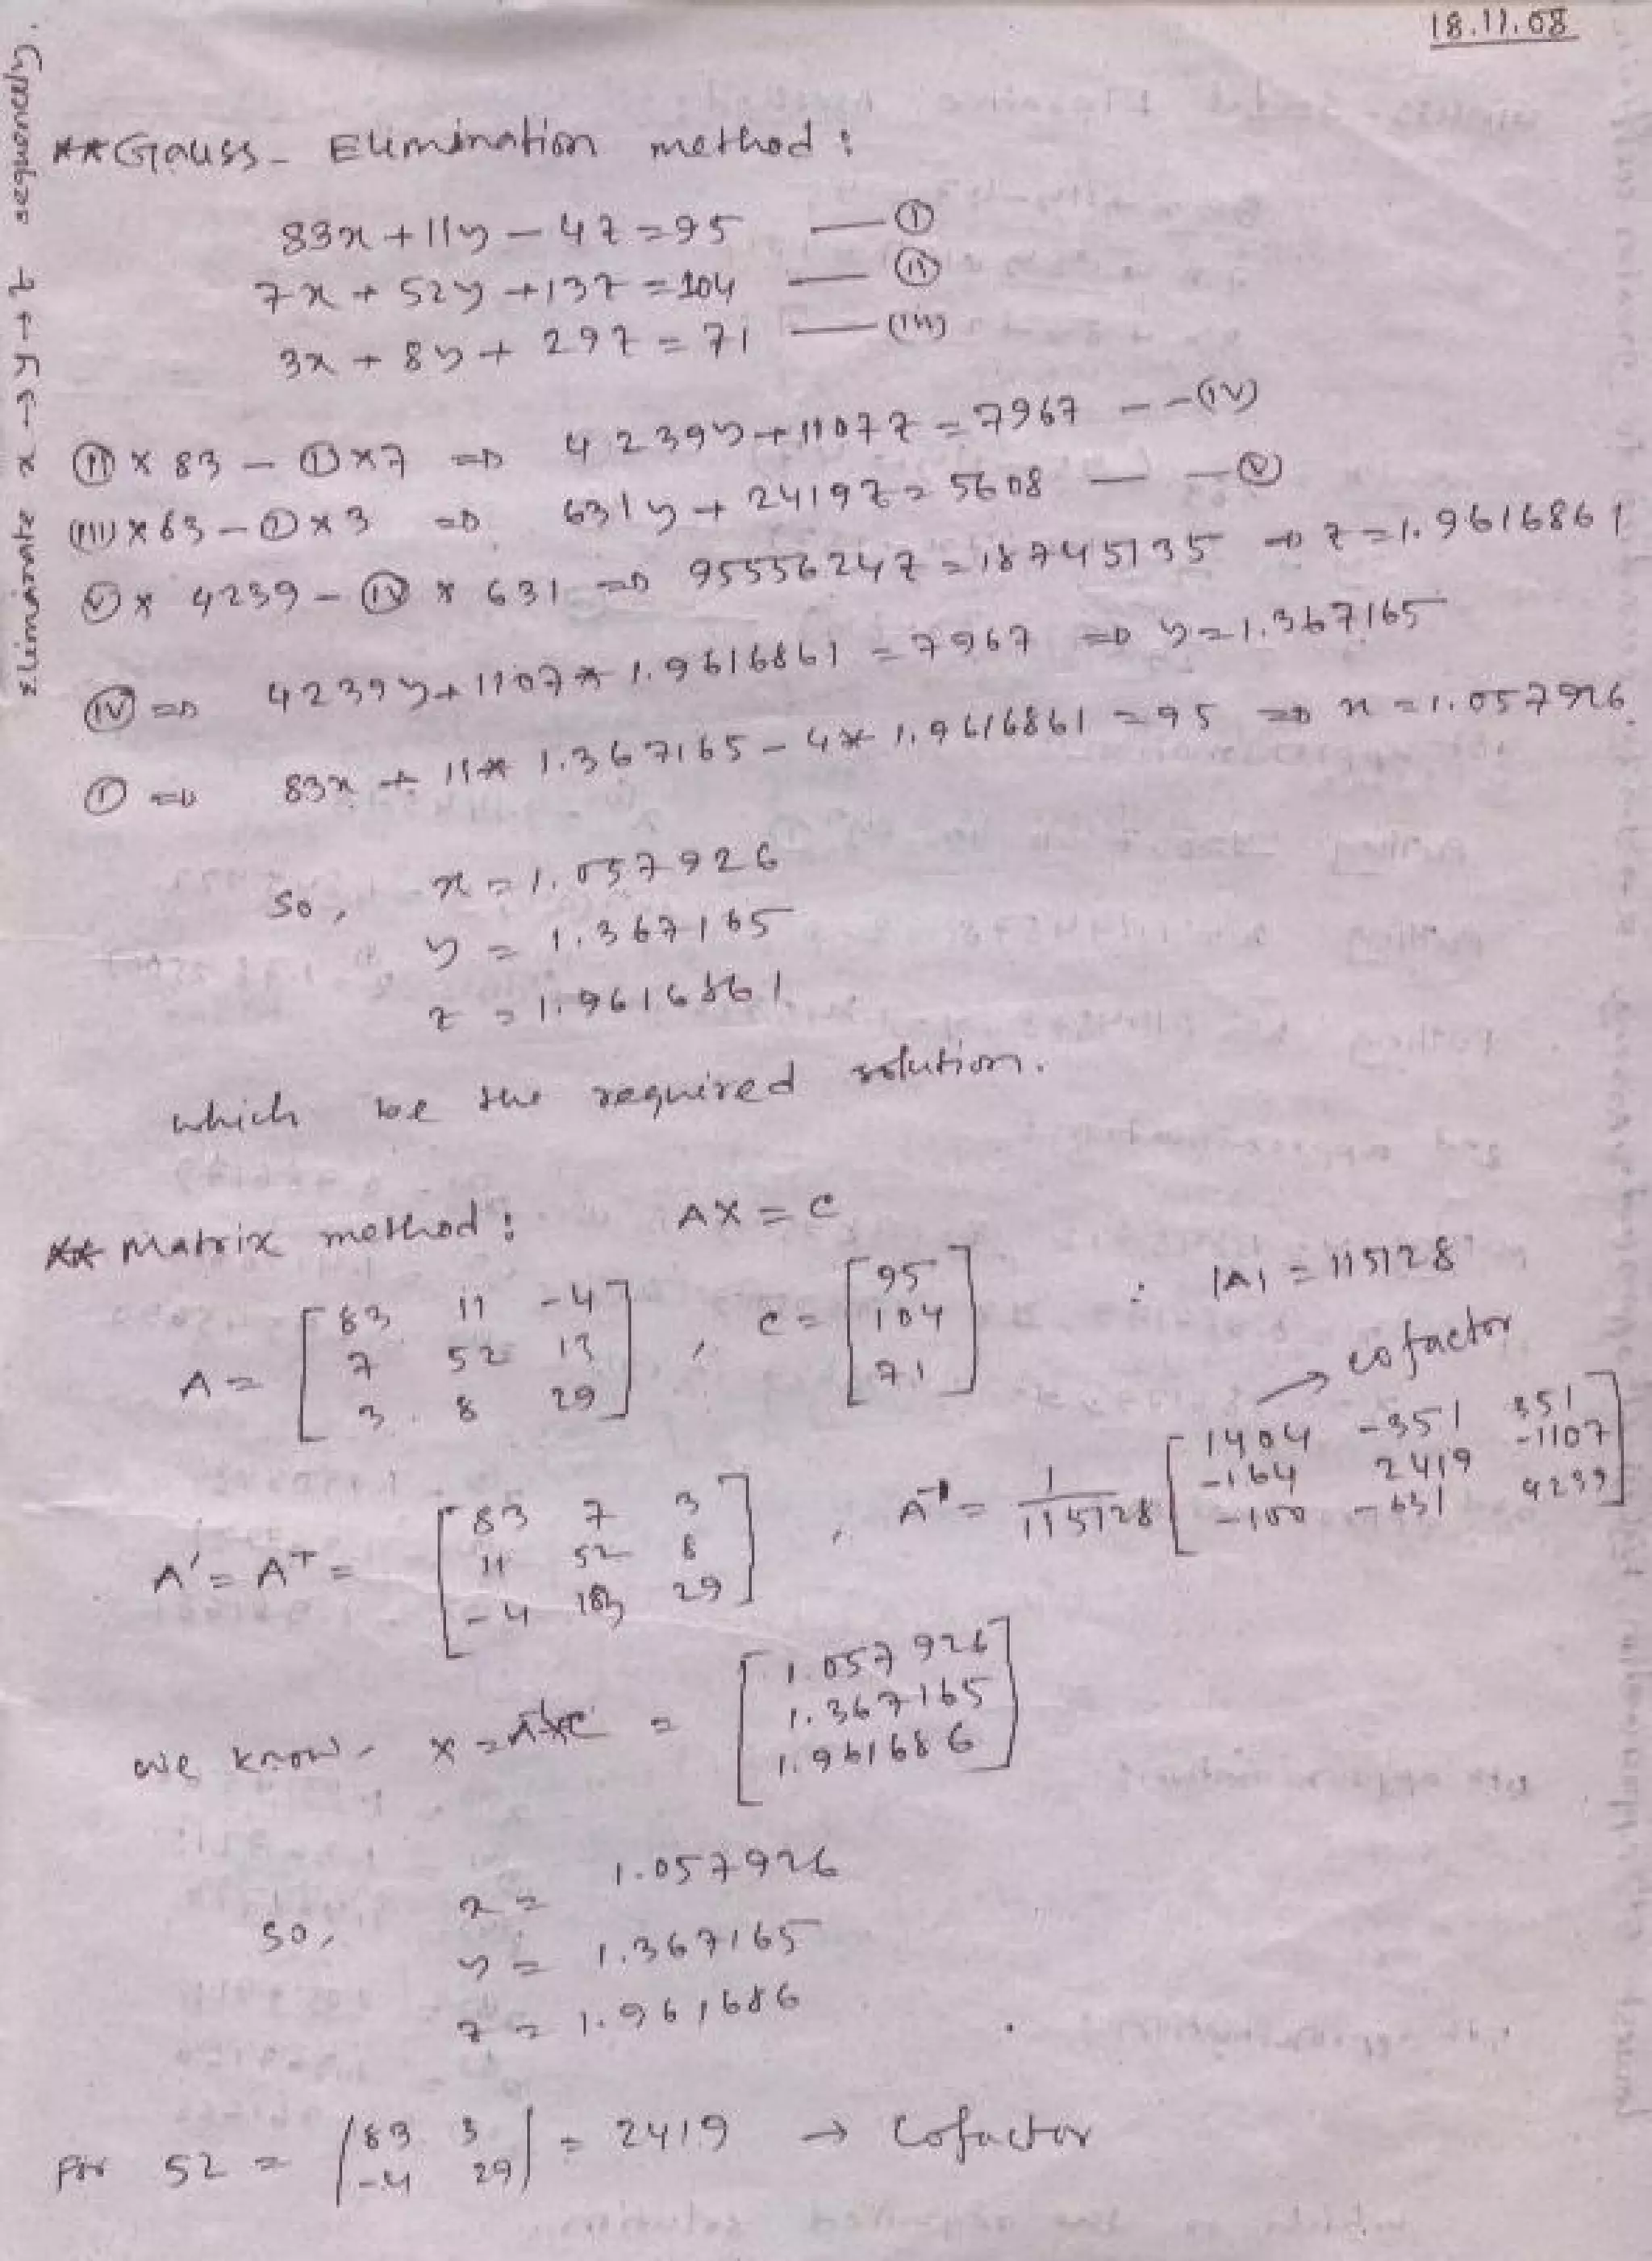 18.11.08
Eliminate x → y → z sequencely.
**Gauss- Elimination method:
83x + 11y - 4z = 95 — (I)
7x + 52y + 13z = 104 — (II)
3x + 8y + 29z = 71 — (III)
(II) × 83 - (I) × 7 ⇒ 4239y + 1107z = 7967 -- (IV)
(III) × 83 - (I) × 3 ⇒ 631y + 2419z = 5608 — — (V)
(V) * 4239 - (IV) * 631 ⇒ 9555624z = 18745135 ⇒ z = 1.9616861
(IV) ⇒ 4239y + 1107 * 1.9616861 = 7967 ⇒ y = 1.367165
(I) ⇒ 83x + 11* 1.367165 - 4* 1.9616861 = 95 ⇒ x = 1.057926
So, x = 1.057926
y = 1.367165
z = 1.9616861
which be the required solution.
** Matrix method: AX = C
A = [83 11 -4
7 52 13
3 8 29] , C = [95
104
71] : |A| = 115128
→ cofactor
A' = A^T = [83 7 3
11 52 8
-4 13 29] , A^-1 = 1/115128 [1404 -351 351
-164 2419 -1107
-100 -631 4239]
we know, x = A^-1 × C = [1.057926
1.367165
1.961686]
So, x = 1.057926
y = 1.367165
z = 1.961686
For 52 = |83 3
-4 29| = 2419 → Cofactor